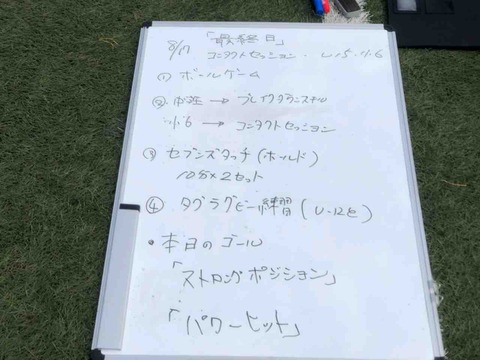 「最終日」
8/17 コンタクトセッション・U-5・小6
① ボールゲーム
② 中学 → ブレイクダウンスキル
小6 → コンタクトセッション
③ セブンズタッチ(ホールド)
10分×2セット
④ タグラグビー練習(U-12と)
・本日のゴール
「ストロングポジション」
「パワーヒット」